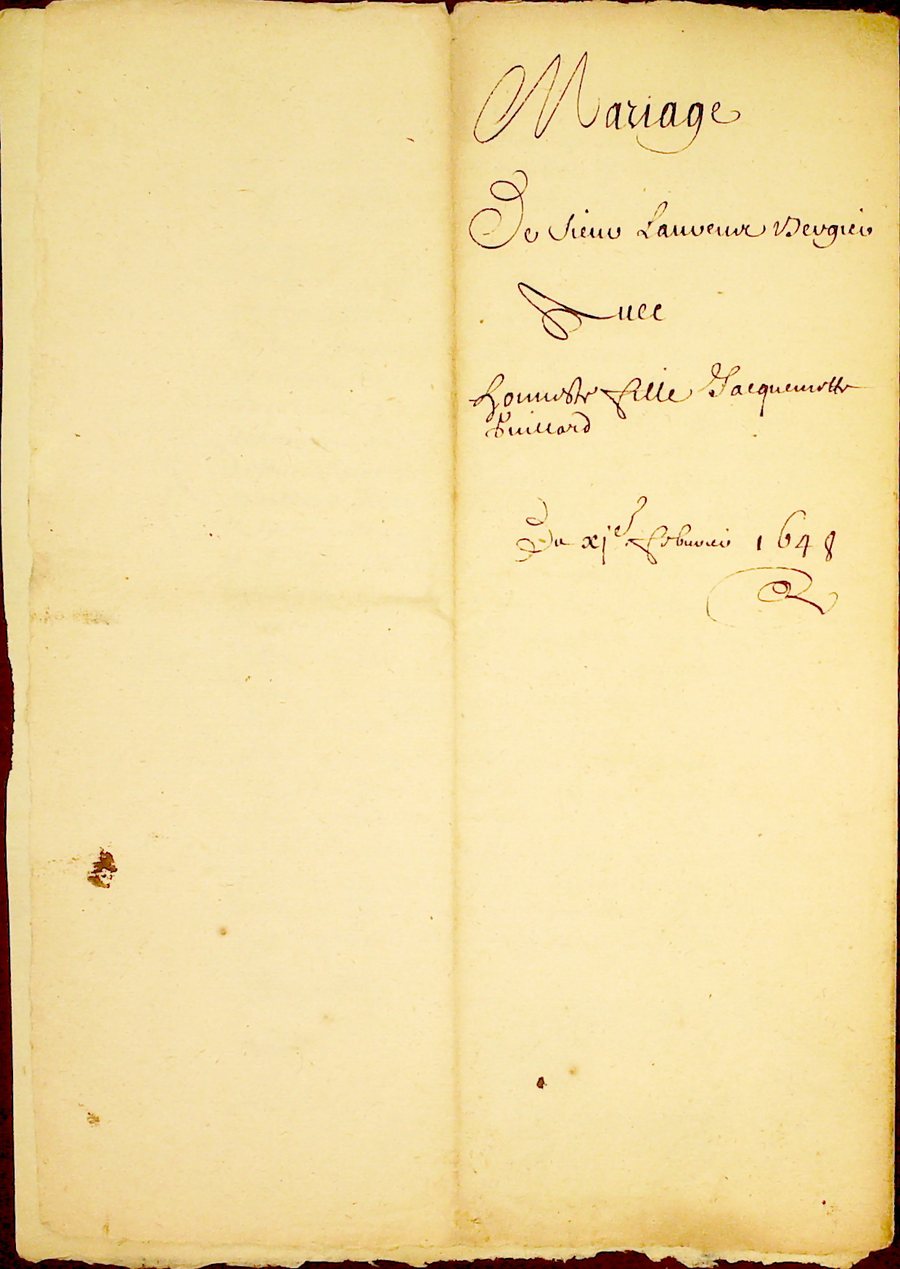 Mariage
De Sieur Laurent Vergier
Auec
honneste fille Jacquemette
Du xj.e febvrier 1648